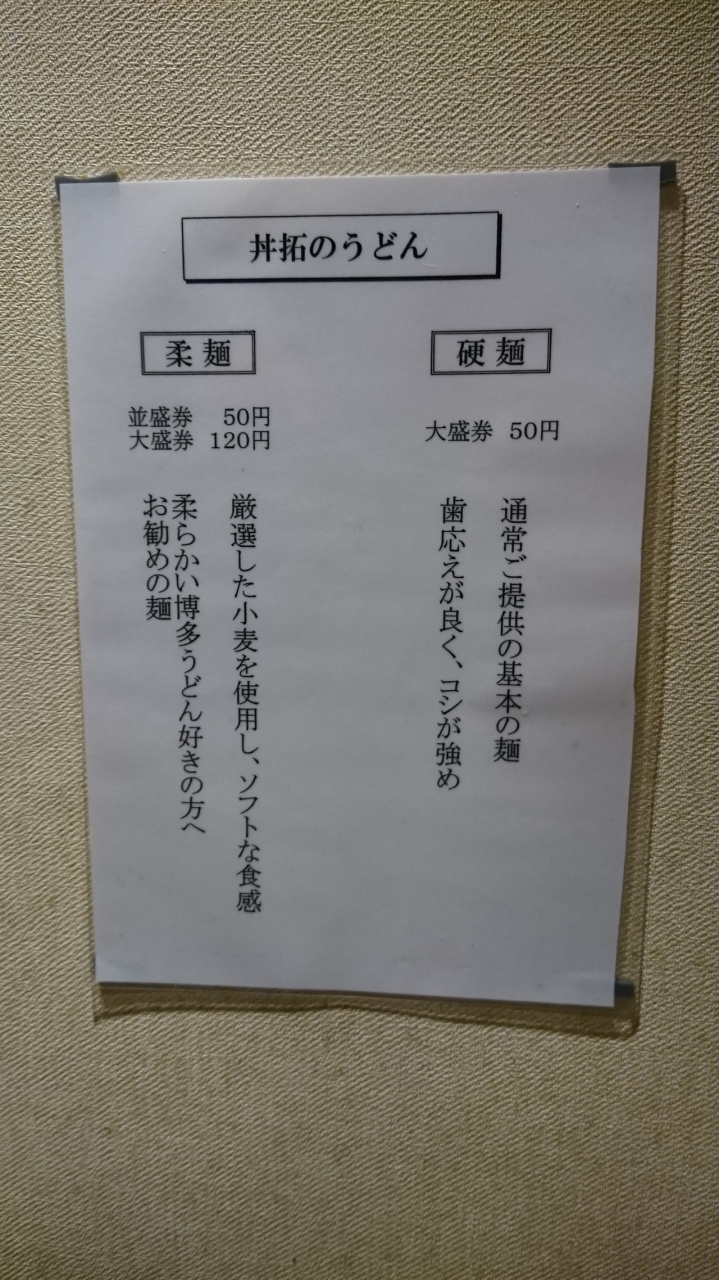 丼拓のうどん
硬麺
大盛券 50円
通常ご提供の基本の麺
歯応えが良く、コシが強め
柔麺
並盛券 50円
大盛券 120円
厳選した小麦を使用し、ソフトな食感
柔らかい博多うどん好きの方へ
お勧めの麺